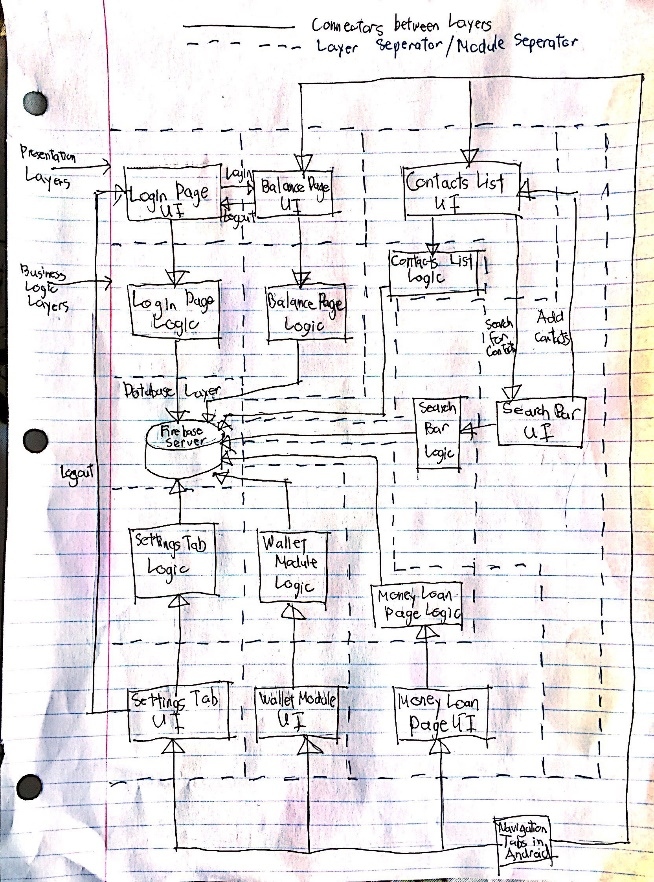 Connectors between Layers
Layer Seperator/Module Seperator
Presentation
Layers
Login Page
UI
Login
Logout
Balance Page
UI
Contacts List
UI
Business
Logic
Layers
Login Page
Logic
Balance Page
Logic
Contacts List
Logic
Search
For
Contacts
Add
Contacts
Database Layer
Firebase
Server
Search
Bar
Logic
Search Bar
UI
Logout
Settings Tab
Logic
Wallet
Module
Logic
Money Loan
Page Logic
Settings Tab
UI
Wallet Module
UI
Money Loan
Page UI
Navigation
Tabs in
Android